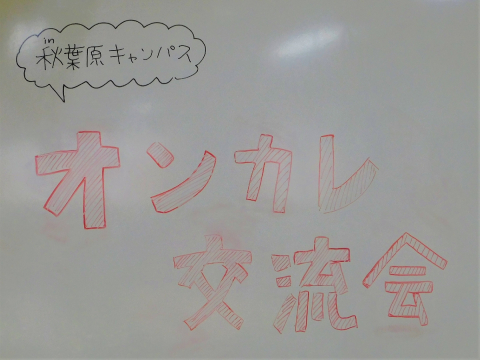 in
秋葉原キャンパス
オンカレ
交流会